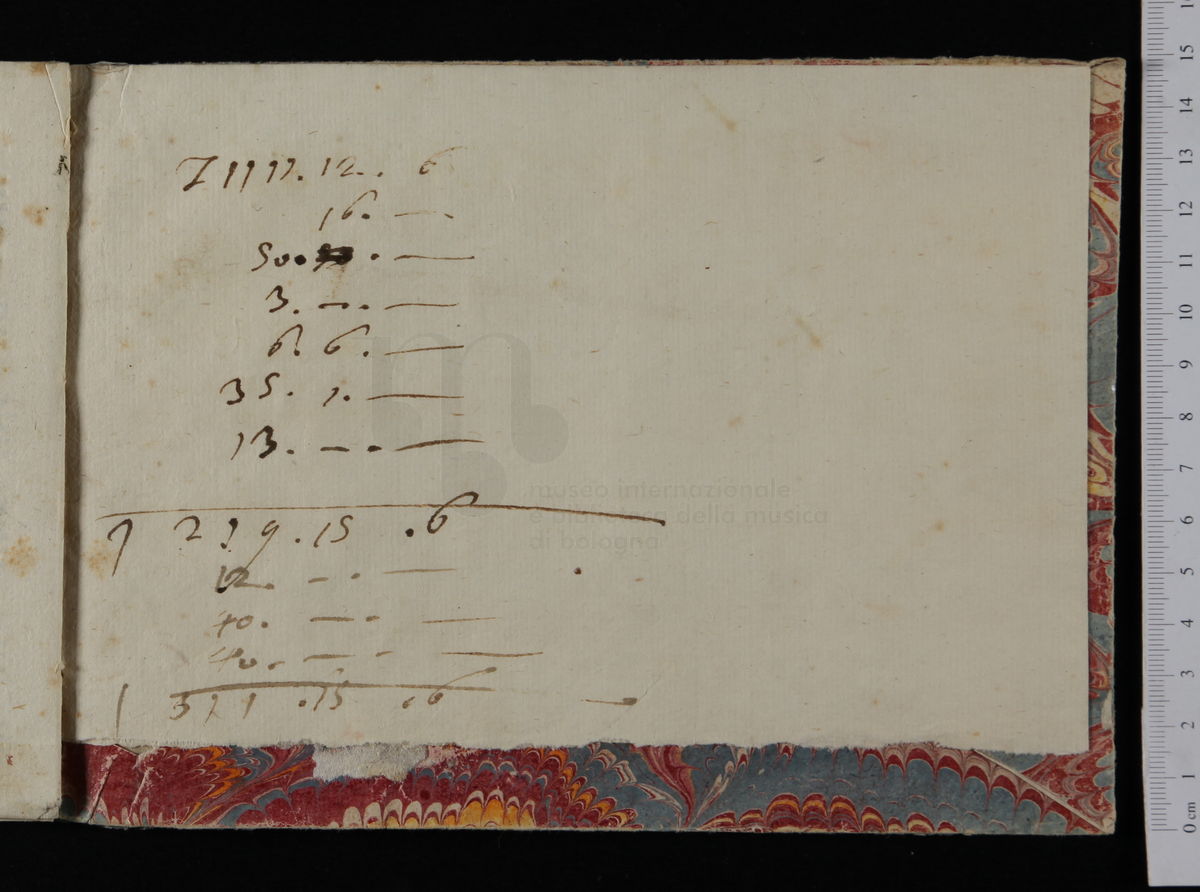 Z 1111. 12. . 6
16. —
50. . —
3. — . —
6. 6. —
35. 1. —
13. — . —
1 219 . 15 . 6
12. — . —
40. — . —
40. — . —
1 311 . 15 . 6 —
museo internazionale
e biblioteca della musica
di bologna
15
14
13
12
11
10
9
8
7
6
5
4
3
2
1
0 cm